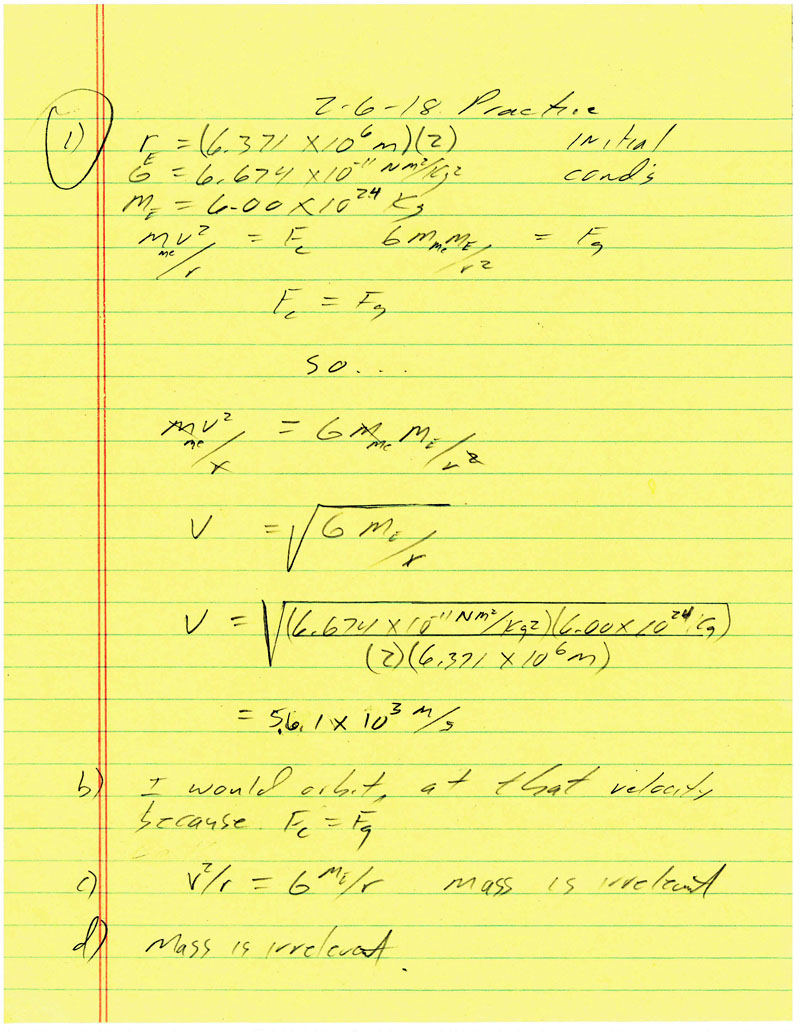 2-6-18 Practice
1) r_E = (6.371 x 10^6 m)(2) initial
G = 6.674 x 10^-11 Nm²/Kg² cond's
M_E = 6.00 x 10^24 Kg
m_me v²/r = F_c G m_me M_E/r² = F_g
F_c = F_g
so...
m_me v²/r = G m_me M_E/r²
V = √(G M_E/r)
V = √((6.674 x 10^-11 Nm²/Kg²)(6.00 x 10^24 Kg)
(2)(6.371 x 10^6 m)
= 5.6.1 x 10^3 m/s
b) I would orbit, at that velocity
because F_c = F_g
c) v²/r = G M_E/r mass is irrelevant
d) Mass is irrelevant.